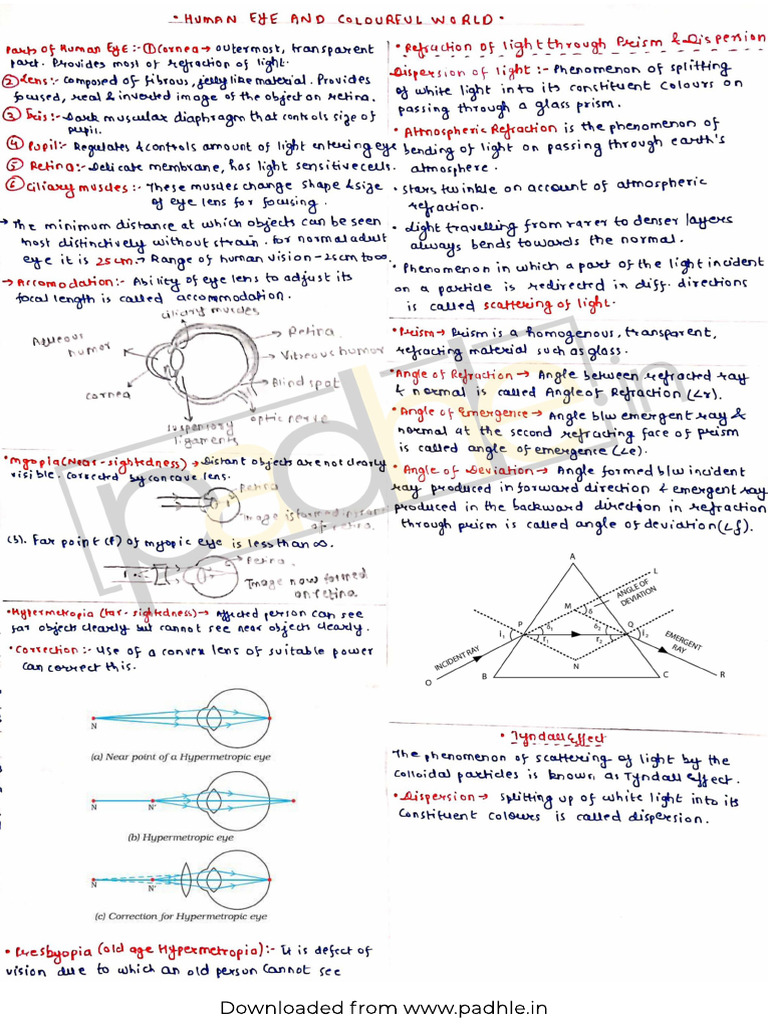 • HUMAN EYE AND COLOURFUL WORLD •
Parts of Human Eye :- ① Cornea → outermost, transparent
part. Provides most of refraction of light.
② Lens :- composed of fibrous, jelly like material. Provides
focused, real & inverted image of the object on retina.
③ Iris :- Dark muscular diaphragm that controls size of
pupil.
④ Pupil :- Regulates & controls amount of light entering eye
⑤ Retina :- Delicate membrane, has light sensitive cells.
⑥ Ciliary muscles :- These muscles change shape & size
of eye lens for focusing.
→ The minimum distance at which objects can be seen
most distinctively without strain. For normal adult
eye it is 25 cm. → Range of human vision - 25 cm to ∞.
→ Accomodation :- Ability of eye lens to adjust its
focal length is called accommodation.
ciliary muscles
Aqueous
humor
Retina
Vitreous humor
Blind spot
cornea
optic nerve
suspensory
ligaments
• Myopia (Near-sightedness) → Distant objects are not clearly
visible. Corrected by concave lens.
Retina
Image is formed in front
of retina.
(S). Far point (F) of myopic eye is less than ∞.
Retina
Image now formed
on retina
• Hypermetropia (far-sightedness) → Affected person can see
far object clearly but cannot see near objects clearly.
• Correction :- Use of a convex lens of suitable power
can correct this.
N
(a) Near point of a Hypermetropic eye
N N'
(b) Hypermetropic eye
N N'
(c) Correction for Hypermetropic eye
• Presbyopia (old age Hypermetropia) :- It is defect of
vision due to which an old person cannot see
• Refraction of light through Prism & Dispersion
Dispersion of light :- Phenomenon of splitting
of white light into its constituent colours on
passing through a glass prism.
• Atmospheric Refraction is the phenomenon of
bending of light on passing through earth's
atmosphere.
• stars twinkle on account of atmospheric
refraction.
• Light travelling from rarer to denser layers
always bends towards the normal.
• Phenomenon in which a part of the light incident
on a particle is redirected in diff. directions
is called scattering of light.
• Prism → Prism is a homogenous, transparent,
refracting material such as glass.
• Angle of Refraction → Angle between refracted ray
& normal is called Angle of Refraction (∠r).
• Angle of Emergence → Angle b/w emergent ray &
normal at the second refracting face of prism
is called angle of emergence (∠e).
• Angle of Deviation → Angle formed b/w incident
ray produced in forward direction & emergent ray
produced in the backward direction in refraction
through prism is called angle of deviation (∠δ).
A
L
ANGLE OF
DEVIATION
M δ
P δ₁ δ₂ Q
i₁ r₁ r₂ i₂
EMERGENT
RAY
INCIDENT RAY
N
O B C R
• Tyndall Effect
The phenomenon of scattering of light by the
colloidal particles is known as Tyndall Effect.
• Dispersion → splitting up of white light into its
constituent colours is called dispersion.
padhle.in
Downloaded from www.padhle.in